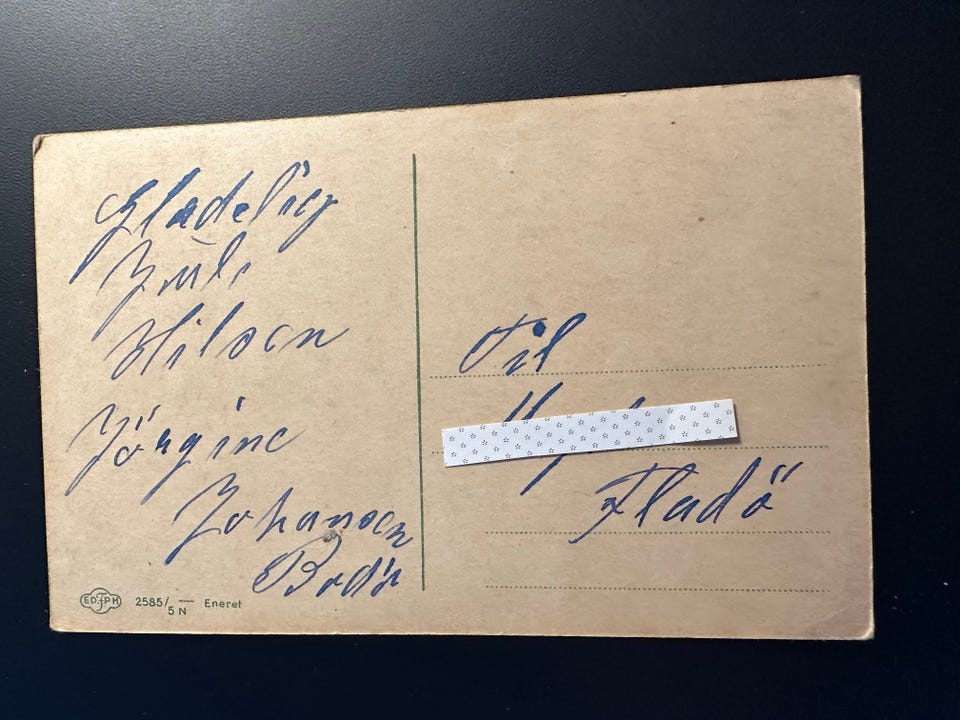 Gladelig
Jul
Hilsen
Jörgine
Johansen
Bodö
EDFPH 2585/— 5N Eneret
Til
Fladö